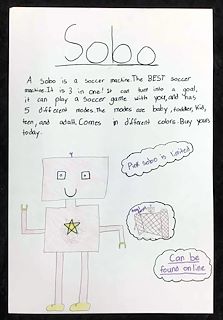 Sobo
A Sobo is a soccer machine. The BEST soccer
machine. It is 3 in one! It can turn into a goal,
it can play a soccer game with you, and has
5 different modes. The modes are baby, toddler, kid,
teen, and adult. Comes in different colors. Buy yours
today.
Pink sobo is limited
Can be
found online